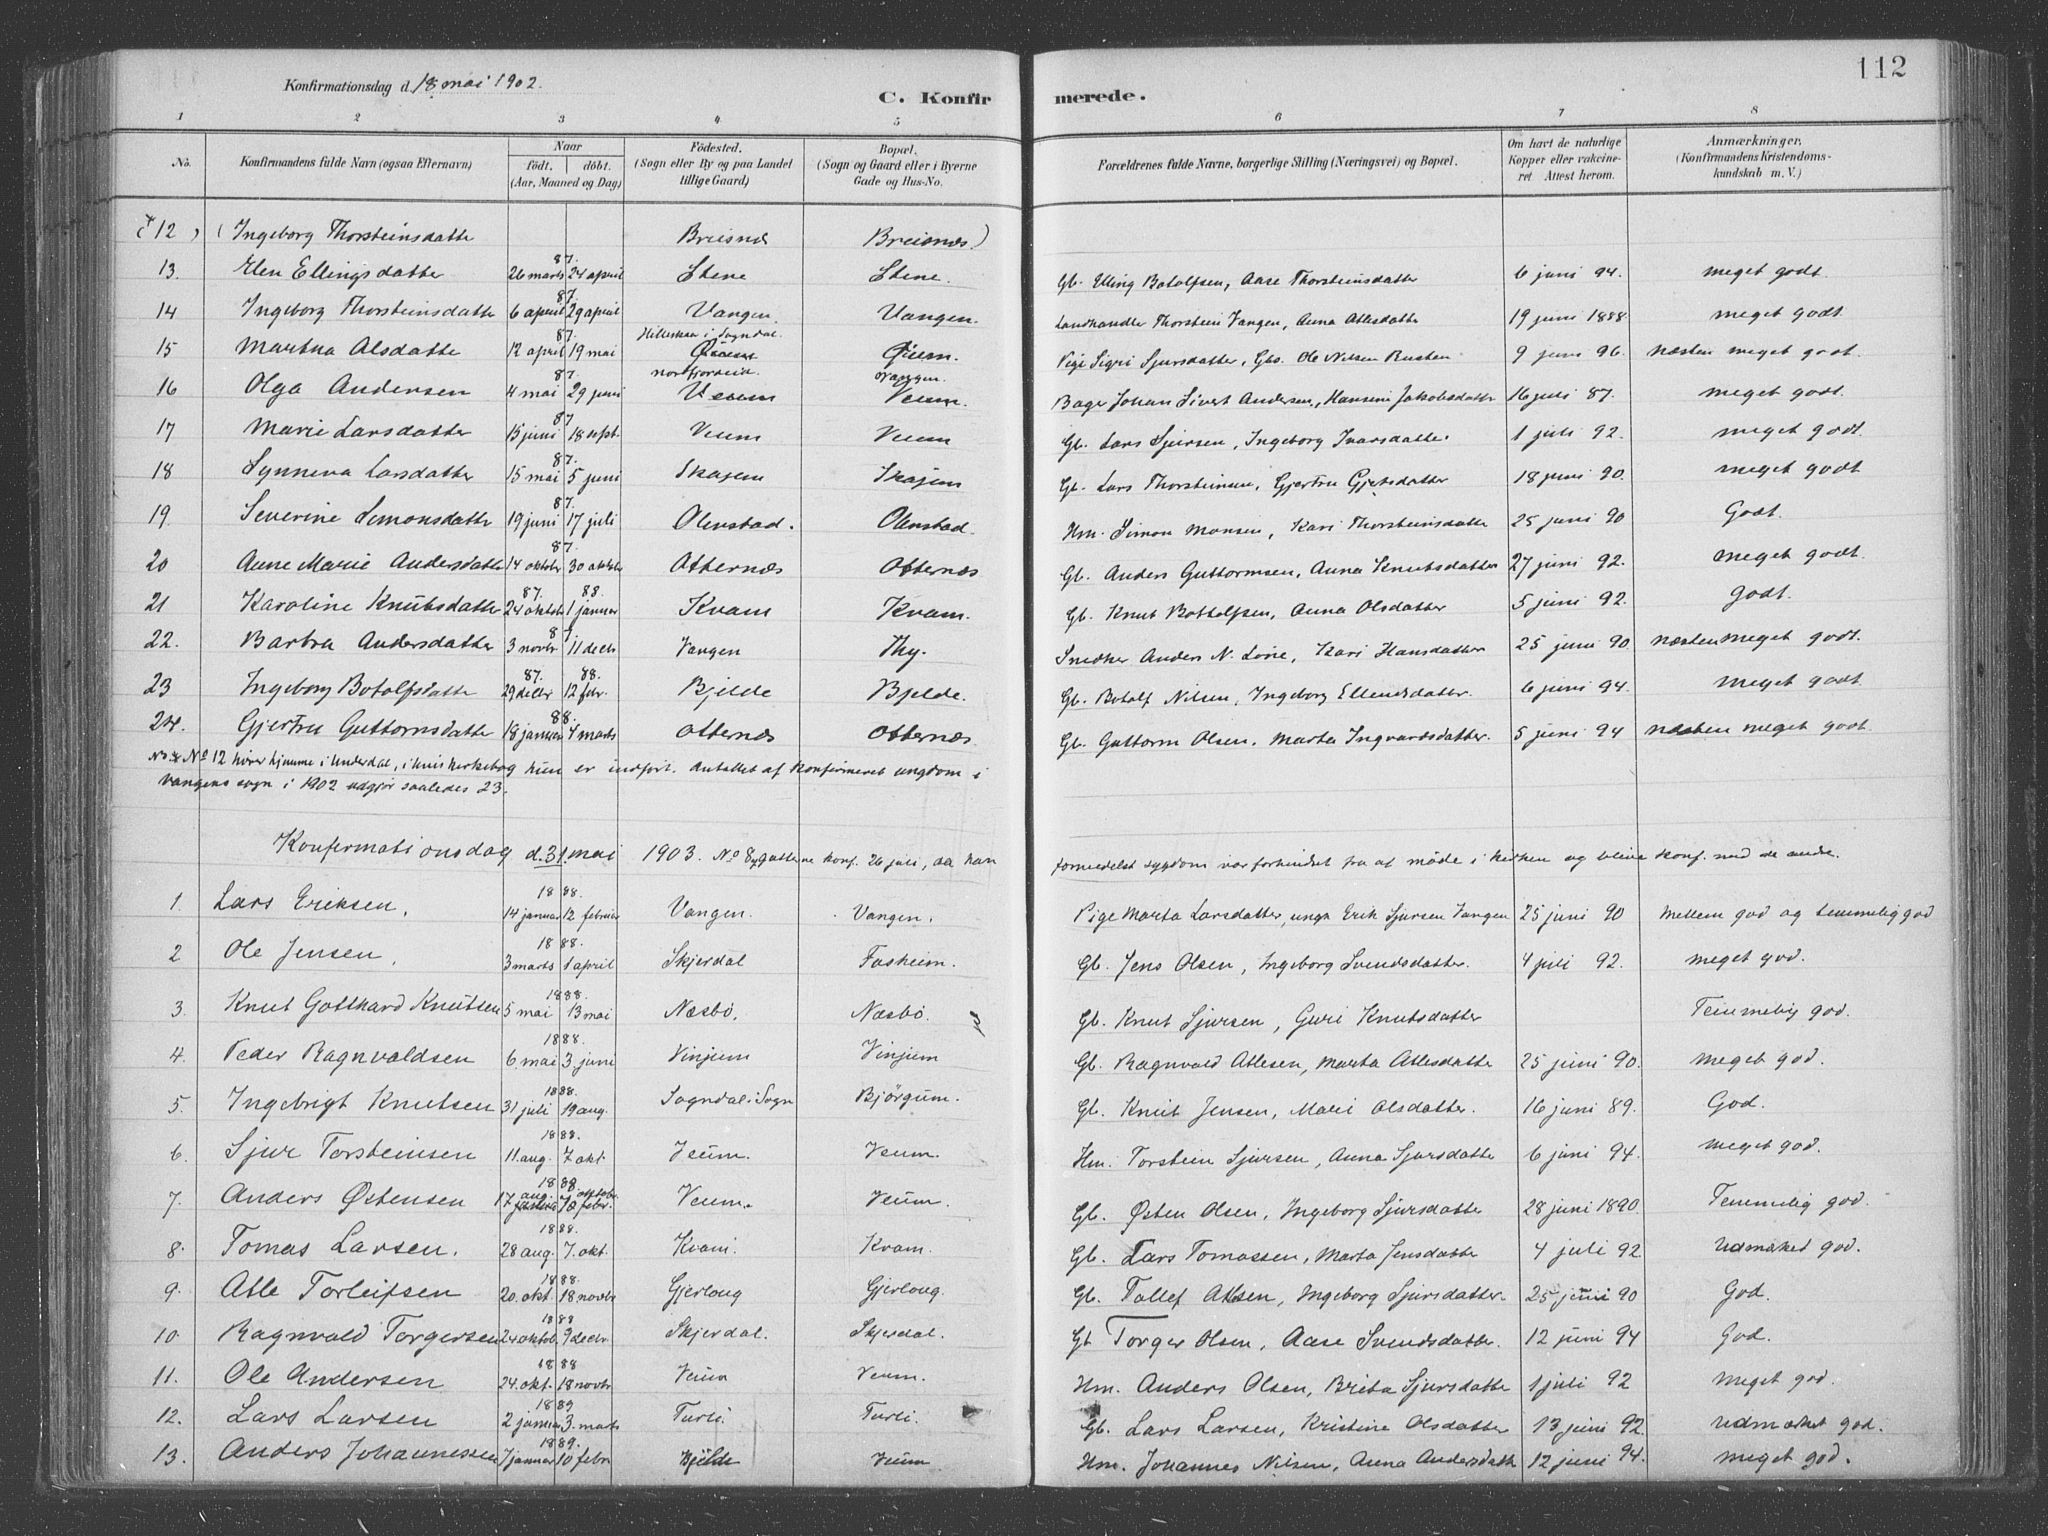 112
Konfirmationsdag d. 18 mai 1902.
C. Konfirmerede.
1 2 3 4 5 6 7 8
No. Konfirmandens fulde Navn (ogsaa Efternavn) Naar født. døbt. (Aar, Maaned og Dag) Fødested. (Sogn eller By og paa Landet tillige Gaard) Bopæl. (Sogn og Gaard eller i Byerne Gade og Hus-No. Forældrenes fulde Navne, borgerlige Stilling (Næringsvei) og Bopæl. Om havt de naturlige Kopper eller vakcineret Attest herom. Anmærkninger. (Konfirmandens Kristendomskundskab m. V.)
12 (Ingeborg Thorsteinsdatter Breisnes Breisnes)
13. Elen Ellingsdatter 87. 26 marts 24 april Stene Stene. Gb. Elling Botolfsen, Aase Thorsteinsdatter 6 juni 94. meget godt.
14 Ingeborg Thorsteinsdatter 87. 6 april 29 april Vangen. Vangen. Landhandler Thorstein Vangen, Anna Atlesdatter 19 juni 1888. meget godt
15 Martha Olsdatter 87. 12 april 19 mai i Sogndal. Pige Sigri Sjursdatter, Gbs. Ole Nilsen Rusten 9 juni 96. næsten meget godt.
16 Olga Andersen 87. 4 mai 29 juni Nordfjordeid. Veum Vangen. Veum. Bager Johan Sivert Andersen, Hansine Jakobsdatter 16 juli 87. meget godt.
17 Marie Larsdatter 87. 15 juni 18 sept. Veum Veum Gb. Lars Sjursen, Ingeborg Ivarsdatter. 1 juli 92. meget godt.
18 Synneva Larsdatter 87. 15 mai 5 juni Skajem Skajem Gb. Lars Thorsteinsen, Gjertru Gjertsdatter 18 juni 90. meget godt
19. Severine Simonsdatter 87. 19 juni 17 juli Olenstad. Olenstad. Hm. Simon Monsen, Kari Thorsteinsdatter 25 juni 90 Godt.
20 Anne Marie Andersdatter 87. 14 oktober 30 oktober Otternæs Otternæs Gb. Anders Guttormsen, Anna Knutsdatter 27 juni 92. meget godt.
21 Karoline Knutsdatter 87. 88. 24 oktob 1 januar Kvam Kvam. Gb. Knut Bottolfsen, Anna Olsdatter 5 juni 92. Godt.
22. Barbra Andersdatter 87 3 novbr 11 decb Vangen Thy. Snedker Anders N. Lone, Kari Hansdatter 25 juni 90. næsten meget godt.
23 Ingeborg Botolfsdatter 87. 88. 29 decbr 12 febr. Bjelde Bjelde. Gb. Botolf Nilsen, Ingeborg Ellendsdatter. 6 juni 94. meget godt
24. Gjertru Guttormsdatter 88. 18 januar 4 marts Otternæs Otternæs. Gb. Guttorm Olsen, Marta Ingvardsdatter. 5 juni 94 næsten meget godt.
No 12 hører hjemme i Underdal, i hvis kirkebog hun er indført. Antallet af konfirmeret ungdom i
Vangens sogn i 1902 udgjør saaledes 23.
Konfirmationsdag d. 31 mai 1903. No 8 gutterne konf. 26 juli, da han formedelst sygdom var forhindret fra at møde i kirken og blive konf. med de andre.
1. Lars Eriksen. 1888. 14 januar 12 februar Vangen. Vangen. Pige Marta Larsdatter, ungk. Erik Sjursen Vangen 25 juni 90 Mellem god og temmelig god
2 Ole Jensen. 1888. 3 marts 1 april Skjerdal Fasheim. Gb. Jens Olsen, Ingeborg Svendsdatter. 4 juli 92. meget god.
3. Knut Gotthard Knutsen 1888. 5 mai 13 mai Næsbø. Næsbø. Gb. Knut Sjursen, Guri Knutsdatter Temmelig god.
4. Peder Ragnvaldsen 1888. 6 mai 3. juni Vinjum Vinjum Gb. Ragnvald Atlesen, Marta Atlesdatter 25 juni 90. meget god.
5. Ingebrigt Knutsen 1888. 31 juli 19 aug. Sogndal i Sogn Bjørgum. Gb. Knut Jensen, Mari Olsdatter. 16 juni 89. God.
6. Sjur Torsteinsen 1888. 11. aug. 7 okt. Veum. Veum. Hm. Torstein Sjursen, Anna Sjursdatter 6 juni 94. meget god.
7. Anders Østensen 1888 17 aug. 7 oktober Veum. Veum. Gb. Østen Olsen, Ingeborg Sjursdatter 28 juni 1890. Temmelig god.
8. Tomas Larsen. 1888. 28 aug. 7. okt. Kvam. Kvam. Gb. Lars Tomassen, Marta Jensdatter 4 juli 92. Udmærket god.
9. Atle Torleifsen 1888. 20. okt. 18 novbr Gjerloug Gjerloug. Gb. Tollef Atlesen, Ingeborg Sjursdatter. 25 juni 90 God.
10. Ragnvald Torgersen 1888 24 oktob. 9 decbr. Skjerdal. Skjerdal. Gb Torger Olsen, Aase Svendsdatter. 12 juni 94 God.
11. Ole Andersen 1888 24. okt. 18 novbr Veum Veum. Hm. Anders Olsen, Brita Sjursdatter 1 juli 92 Meget god.
12. Lars Larsen 1889 2 januar 3. marts Turli. Turli. Gb. Lars Larsen, Kristine Olsdatter 13 juni 92. Udmærket god.
13. Anders Johannessen 1889. 7 januar 10 febr Bjelde Veum Hm. Johannes Nilsen, Anna Andersdatt 12 juni 94. meget god.